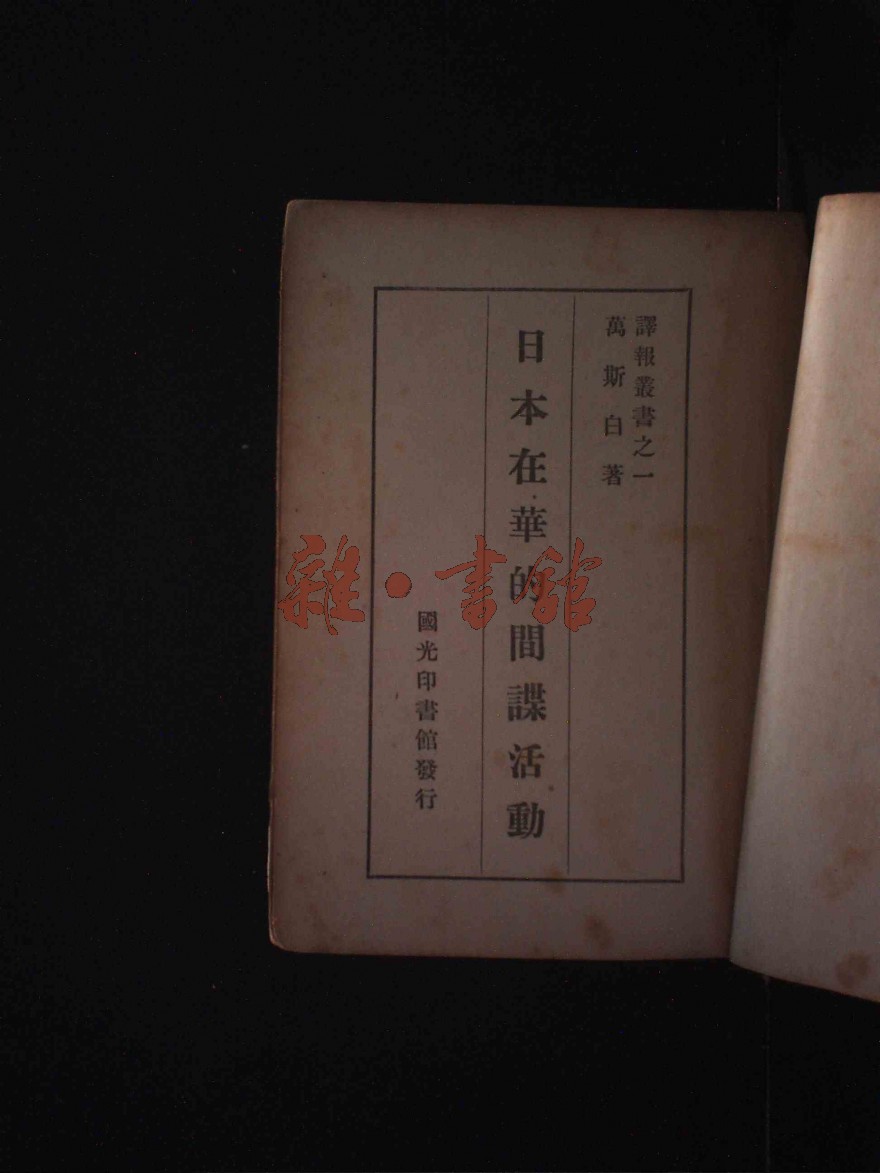 譯報叢書之一
萬斯白著
日本在華的間諜活動
國光印書館發行
雜·書館